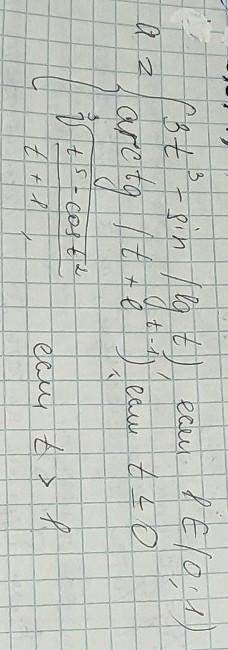 a = { 3t³ - sin(lg t), если t ∈ (0;1)
arctg(t + e^(t-1)), если t ≤ 0
∛(t⁵ - cos t²) / (t + 1), если t > 1